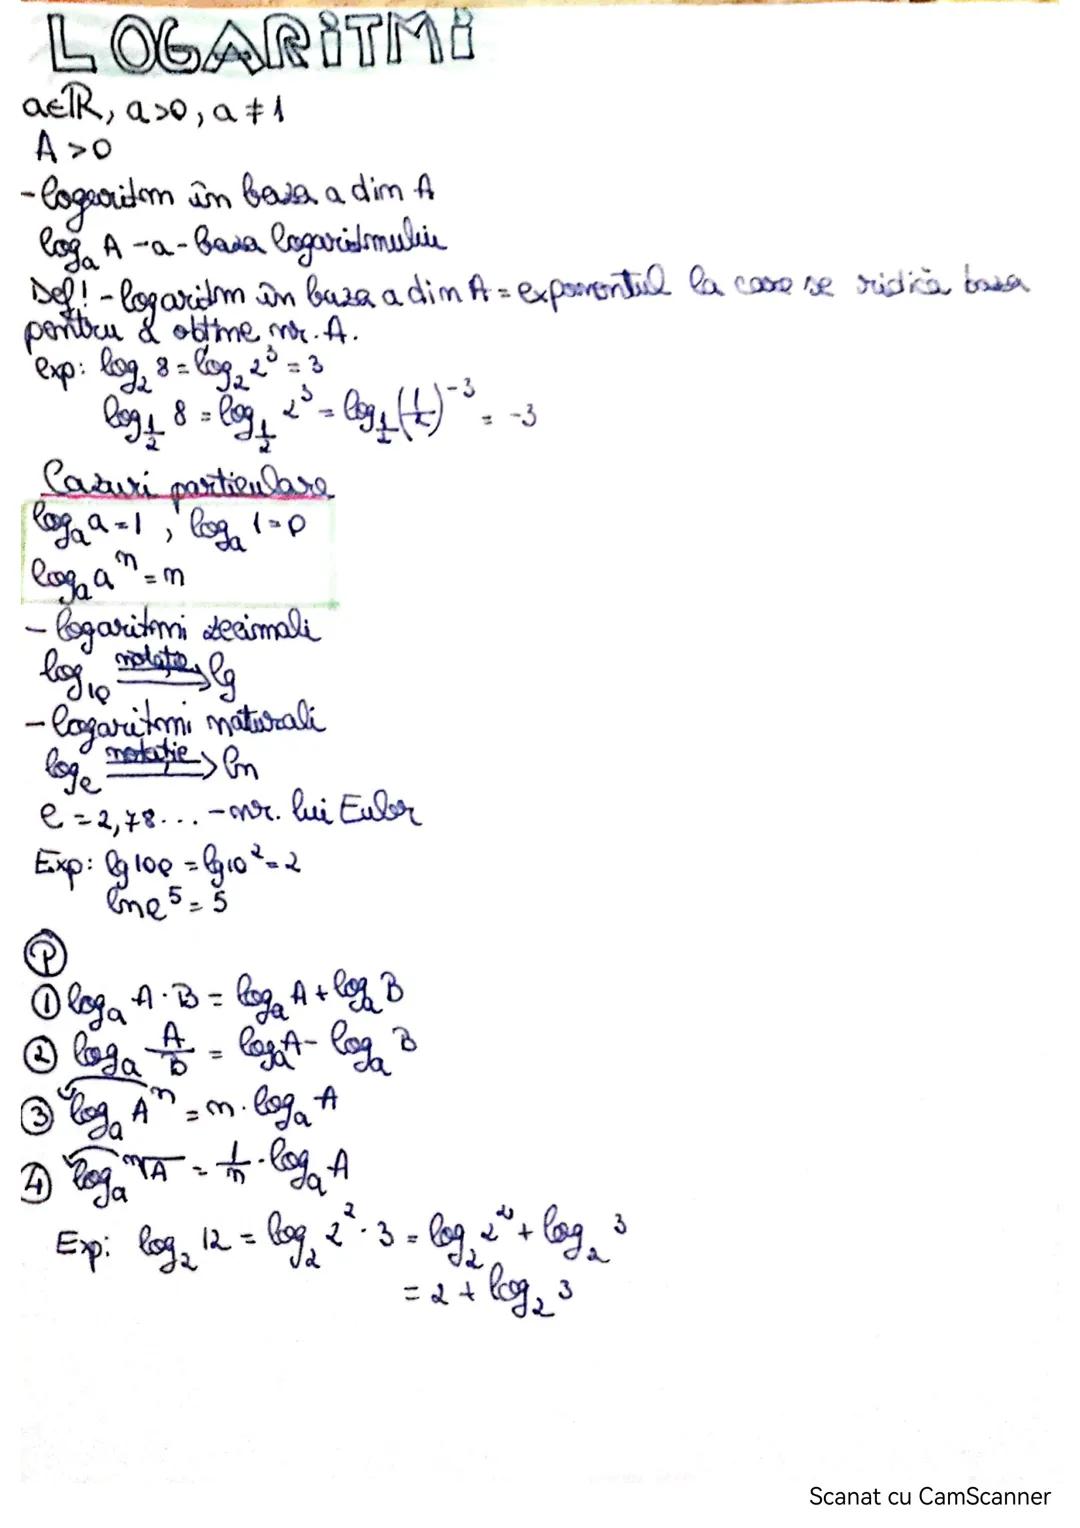 LOGARiTMi
a∈ℝ, a>0, a≠1
A>0
-logaritm în baza a din A
logₐ A -a- baza logaritmului
Def! - logaritm în baza a din A = exponentul la care se ridică baza
pentru a obține nr. A.
exp: log₂ 8 = log₂ 2³ = 3
log_{1/2} 8 = log_{1/2} 2³ = log_{1/2} (1/2)⁻³ = -3
Cazuri particulare
logₐ a = 1, logₐ 1 = 0
logₐ aⁿ = n
- logaritmi zecimali
log₁₀ notație⟹ lg
- logaritmi naturali
logₑ notație⟹ ln
e = 2,78... - nr. lui Euler
Exp: lg 100 = lg 10² = 2
ln e⁵ = 5
Ⓟ
① logₐ A·B = logₐ A + logₐ B
② logₐ A/B = logₐ A - logₐ B
③ logₐ Aⁿ = n · logₐ A
④ logₐ ⁿ√A = 1/n · logₐ A
Exp: log₂ 12 = log₂ 2² · 3 = log₂ 2² + log₂ 3
= 2 + log₂ 3
Scanat cu CamScanner